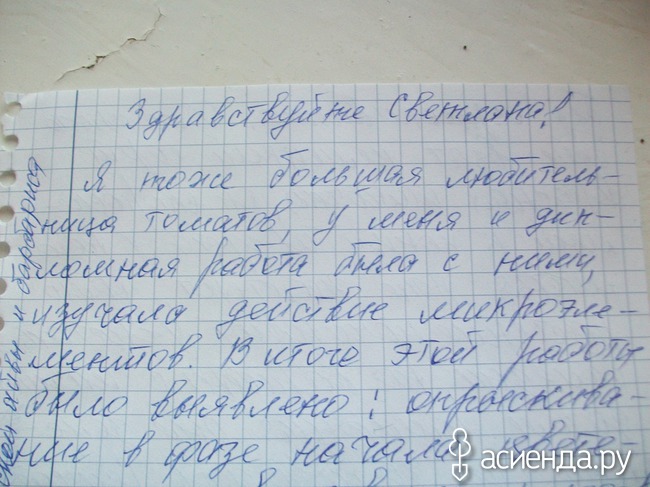 Здравствуйте Светлана!
Я тоже большая любитель-
ница томатов, у меня и дип-
ломная работа была с ними,
изучала действие микроэле-
ментов. В итоге этой работы
было выявлено: опрыскива-
ние в фазе начала цвете-
и барбариса
асиенда.ру